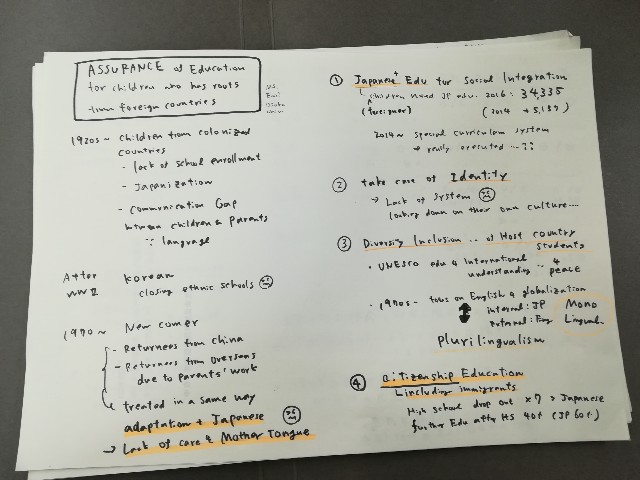 ASSURANCE of Education
for children who has roots
from foreign countries
Ms.
Emi
Osaka
Univ.
1920s ~ Children from colonized
countries
- lack of school enrollment
- Japanization
- Communication Gap
between children & parents
∵ language
After
WWII
Korean
closing ethnic schools
1970 ~ New comer
- Returnees from China
- Returnees from Overseas
due to parents' work
treated in a same way
adaptation & Japanese
→ Lack of care & Mother Tongue
① Japanese + Edu for Social Integration
Children need JP edu. 2016: 34,335
(foreigner)
(2014 + 5,137)
2014 ~ special curriculum system
→ really executed ...??
② take care of Identity
→ Lack of system
looking down on their own culture....
③ Diversity Inclusion .. of Host country
students
• UNESCO edu 4 International
understanding ~ 4
peace
- 1970s - focus on English & globalization
internal: JP
external: Eng
Mono
Lingual
Plurilingualism
④ Citizenship Education
including immigrants
High school drop out ×7 > Japanese
further Edu after HS 40% (JP 60%)